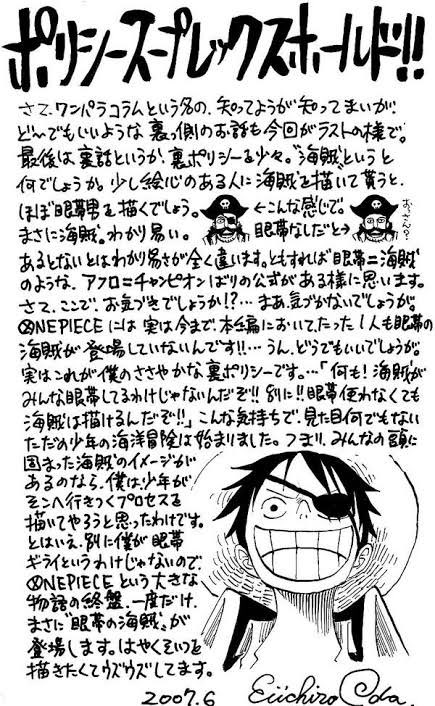 ポリシースープレックスホールド!!
さて、ワンパラコラムという名の、知ってようが知ってまいが、
ど〜〜でもいいような裏側のお話も今回がラストの様で。
最後は裏話というか、裏ポリシーを少々。"海賊"というと
何でしょうか。少し絵心のある人に海賊を描いて貰うと、
ほぼ眼帯男を描くでしょう。 ←こんな感じで。 おっさん?
まさに海賊。わかり易い。 眼帯なしだと→
あるとないとはわかり易さが全く違います。ともすれば眼帯=海賊
のような、アフロ=チャンピオンばりの公式がある様に思います。
さて、ここで、お気づきでしょうか!?…まあ気づかないでしょうが。
ONEPIECEには実は今まで、本編において、たった1人も眼帯の
海賊が登場していないんです!!…うん、どうでもいいでしょうが。
実はこれが僕のささやかな裏ポリシーです。…「何も!海賊が
みんな眼帯してるわけじゃないんだぞ!!別に!!眼帯使わなくても
海賊は描けるんだぞ!!」こんな気持ちで、見た目何でもない
ただの少年の海洋冒険は始まりました。つまり、みんなの頭に
固まった海賊のイメージが
あるのなら、僕は少年が
そこへ行きつくプロセスを
描いてやろうと思ったわけです。
とはいえ、別に僕が眼帯
ギライというわけじゃないので、
ONEPIECEという大きな
物語の終盤、一度だけ、
まさに"眼帯の海賊"が
登場します。はやくそいつを
描きたくてウズウズしてます。
2007.6 Eiichiro Oda.